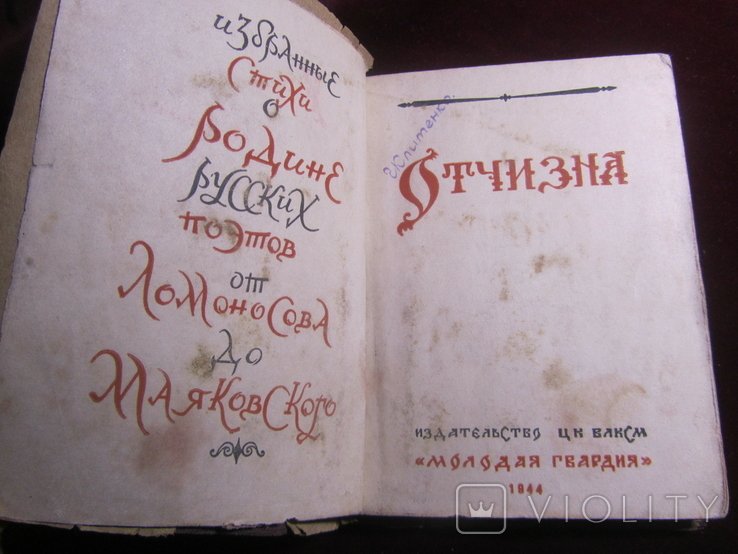 избранные
стихи
о
Родине
русских
поэтов
от
Ломоносова
до
Маяковского
Отчизна
издательство цк влксм
«молодая гвардия»
1944
VIOLITY